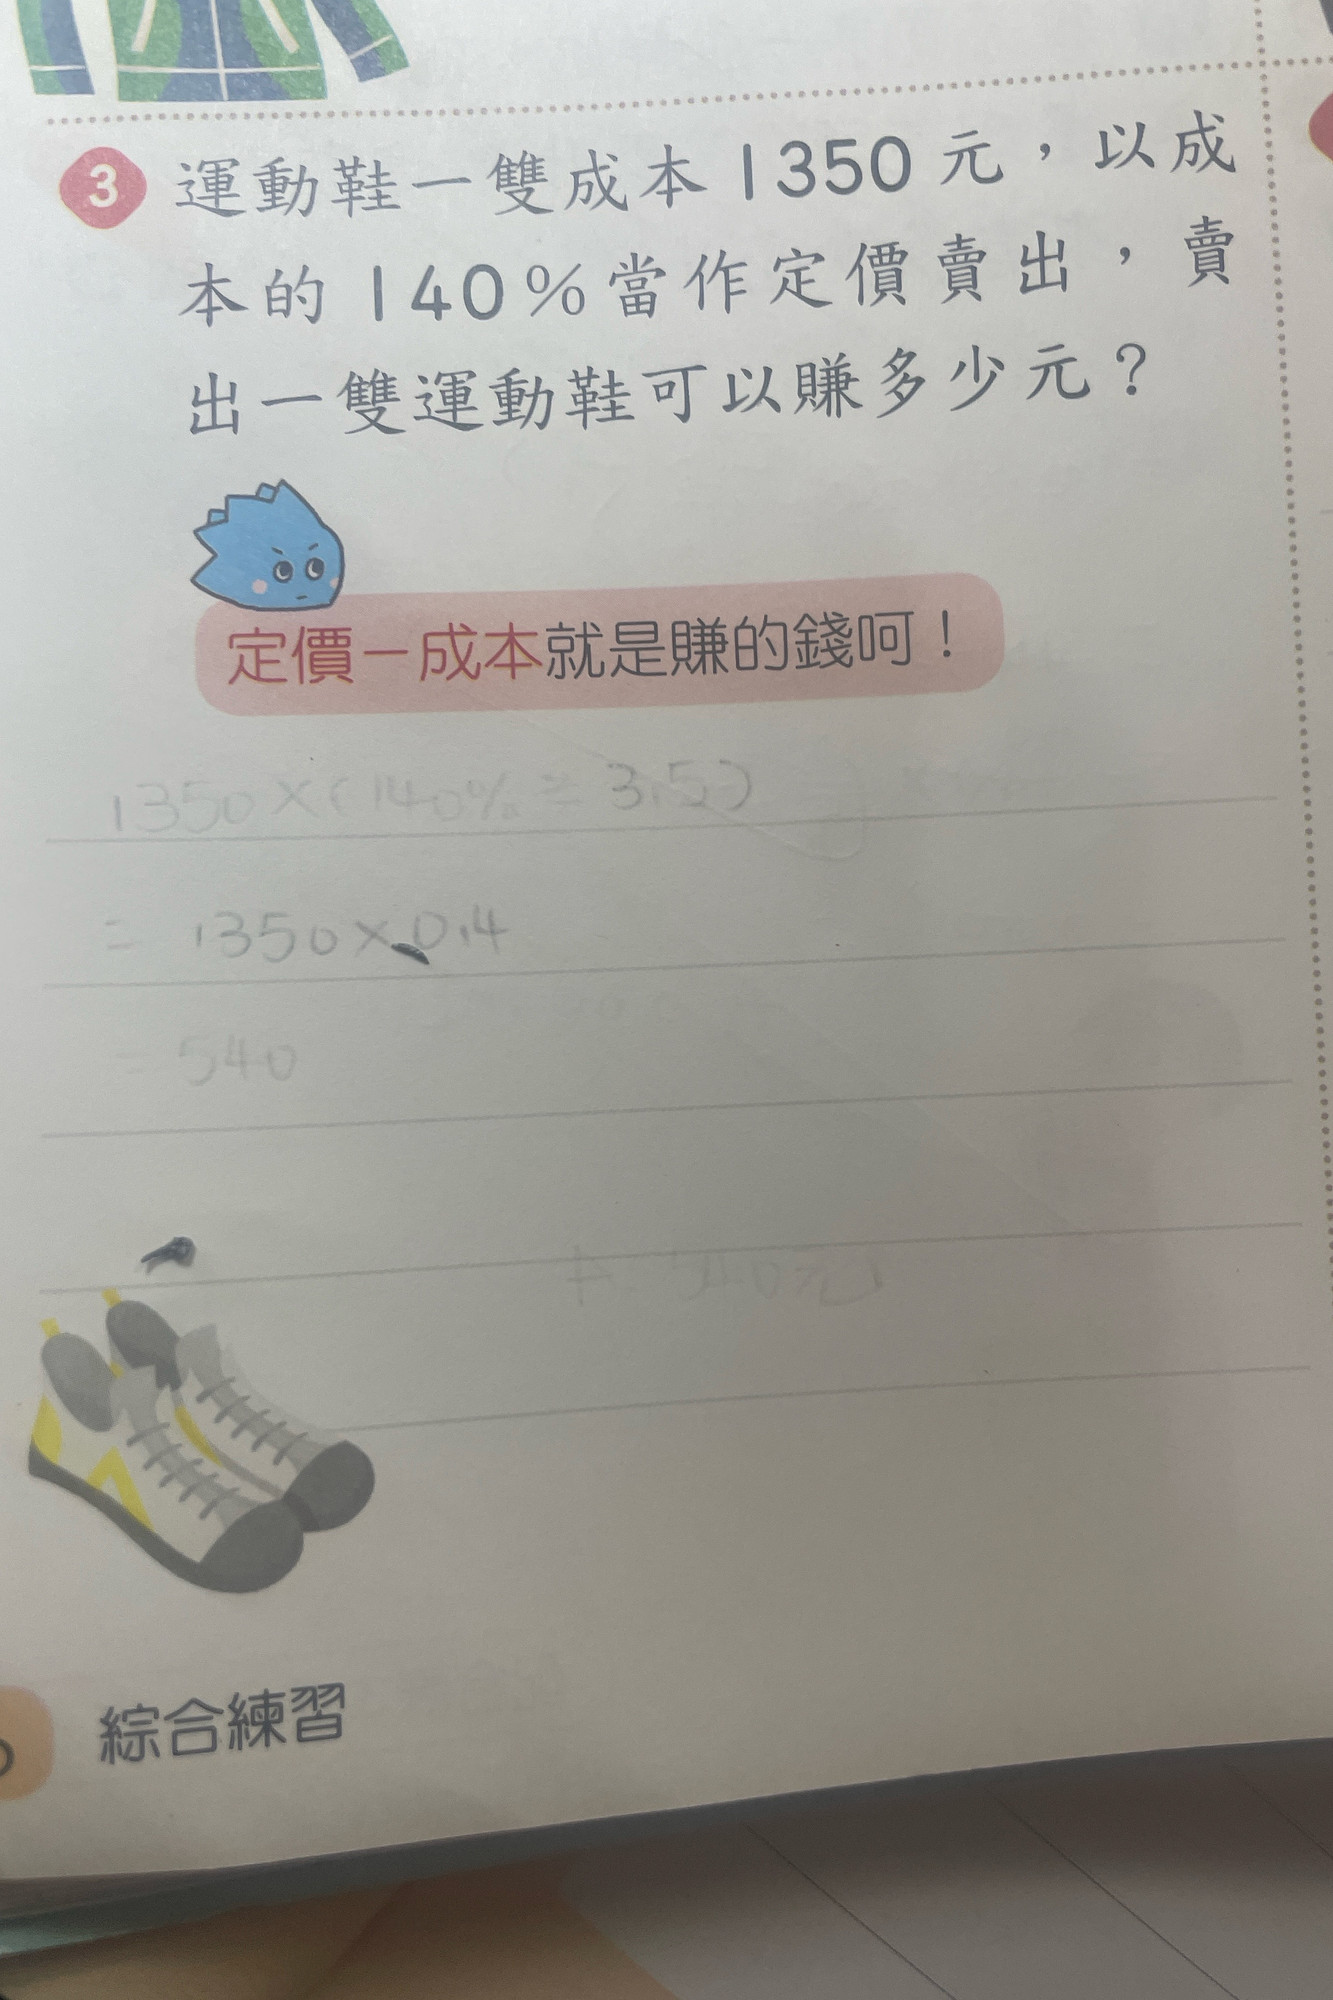 3 運動鞋一雙成本1350元，以成
本的140%當作定價賣出，賣
出一雙運動鞋可以賺多少元？
定價－成本就是賺的錢呵！
1350×(140%÷3.5)
= 1350×0.4
= 540
A: 540元
綜合練習